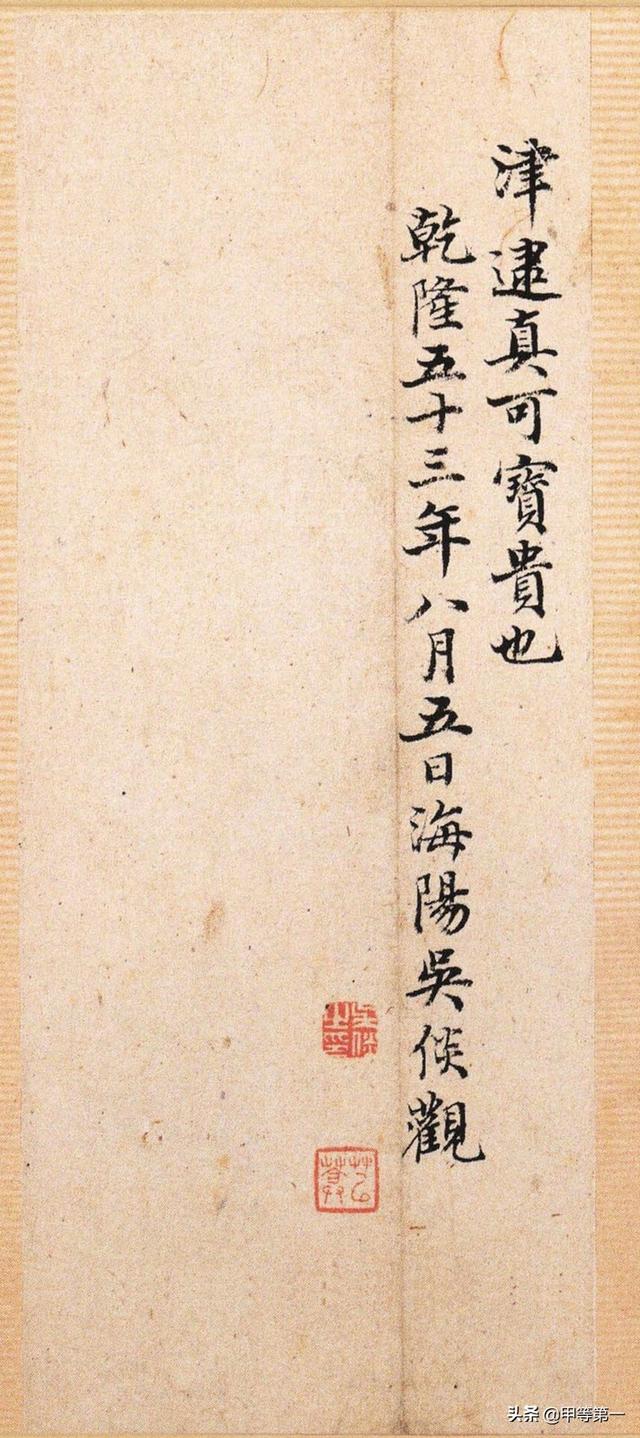 津逮真可寶貴也
乾隆五十三年八月五日海陽吳倓觀
吳倓之印
头条 @甲等第一